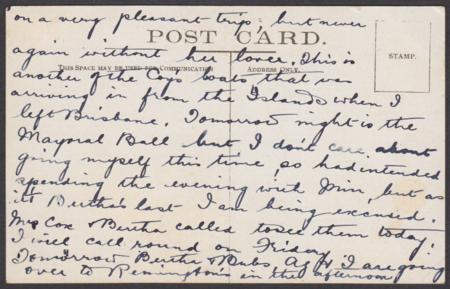 on a very pleasant trip, but never
POST CARD.
again without her lover. This is
THIS SPACE MAY BE USED FOR COMMUNICATION
ADDRESS ONLY.
STAMP.
another of the Coy's boats that was
arriving in from the Islands when I
left Brisbane. Tomorrow night is the
Mayoral Ball but I don't care about
going myself this time, so had intended
spending the evening with Min, but as
it Bertha's last I am being excused.
Mrs Cox & Bertha called to see them today.
I will call round on Friday.
Tomorrow Bertha & I are going
over to Remington's in the afternoon